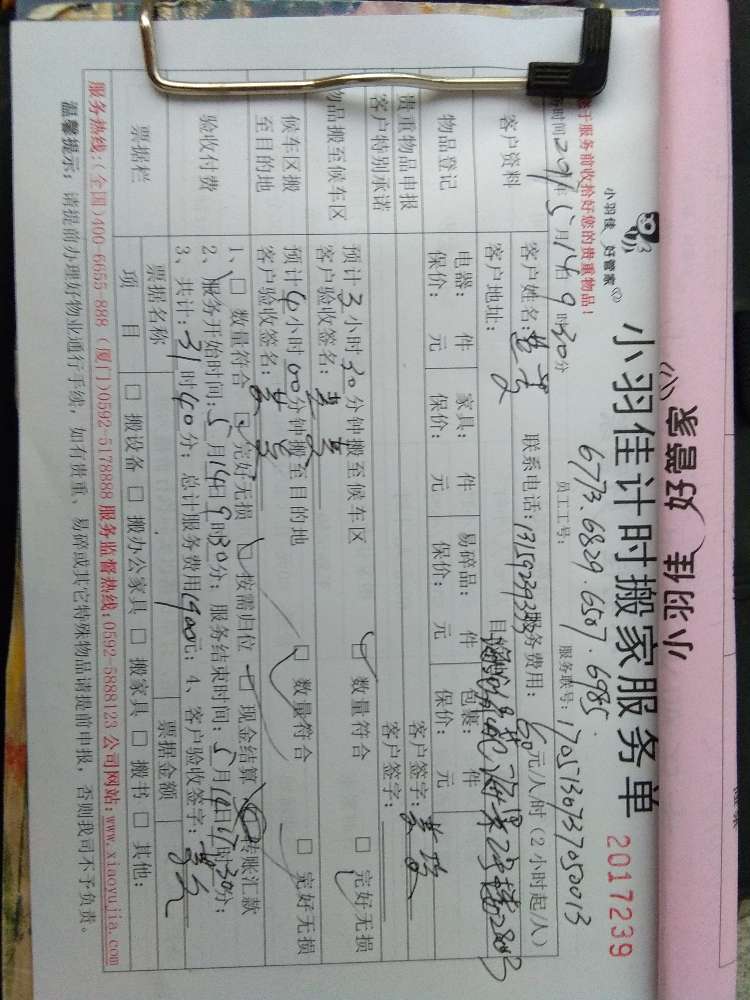 小羽佳 好管家
小羽佳 好管家
小羽佳计时搬家服务单
2017239
员工工号: 6773.6829.6507.6985.
服务于服务前收拾好您的贵重物品!
时间 年5月14日9时30分
客户资料
客户姓名:
联系电话:
服务费用: 60元/人/时(2小时起/人)
客户地址:
物品登记
电器: 件 家具: 件 易碎品: 件 包裹: 件
保价: 元 保价: 元 保价: 元 保价: 元
贵重物品申报
客户签字:
客户特别承诺
客户签字:
物品搬至候车区
预计3小时30分钟搬至候车区
□ 数量符合 □ 完好无损
客户验收签名:
候车区搬至目的地
预计4小时00分钟搬至目的地
□ 数量符合 □ 完好无损
客户验收签名:
验收付费
1、□ 数量符合 □ 完好无损 □ 按需归位 □ 现金结算 转账汇款
2、服务开始时间:5月14日9时30分; 服务结束时间:5月14日17时30分;
3、共计:31时40分; 总计服务费用1900元; 4、客户验收签字:
票据栏
票据名称 票据金额
项目 □ 搬设备 □ 搬办公家具 □ 搬家具 □ 搬书 □ 其他:
服务热线:(全国)400-6655-888 (厦门)0592-5178888 服务监督热线:0592-5888123 公司网站:www.xiaoyujia.com
温馨提示: 请提前办理好物业通行手续, 如有贵重、易碎或其它特殊物品请提前申报, 否则我司不予负责。